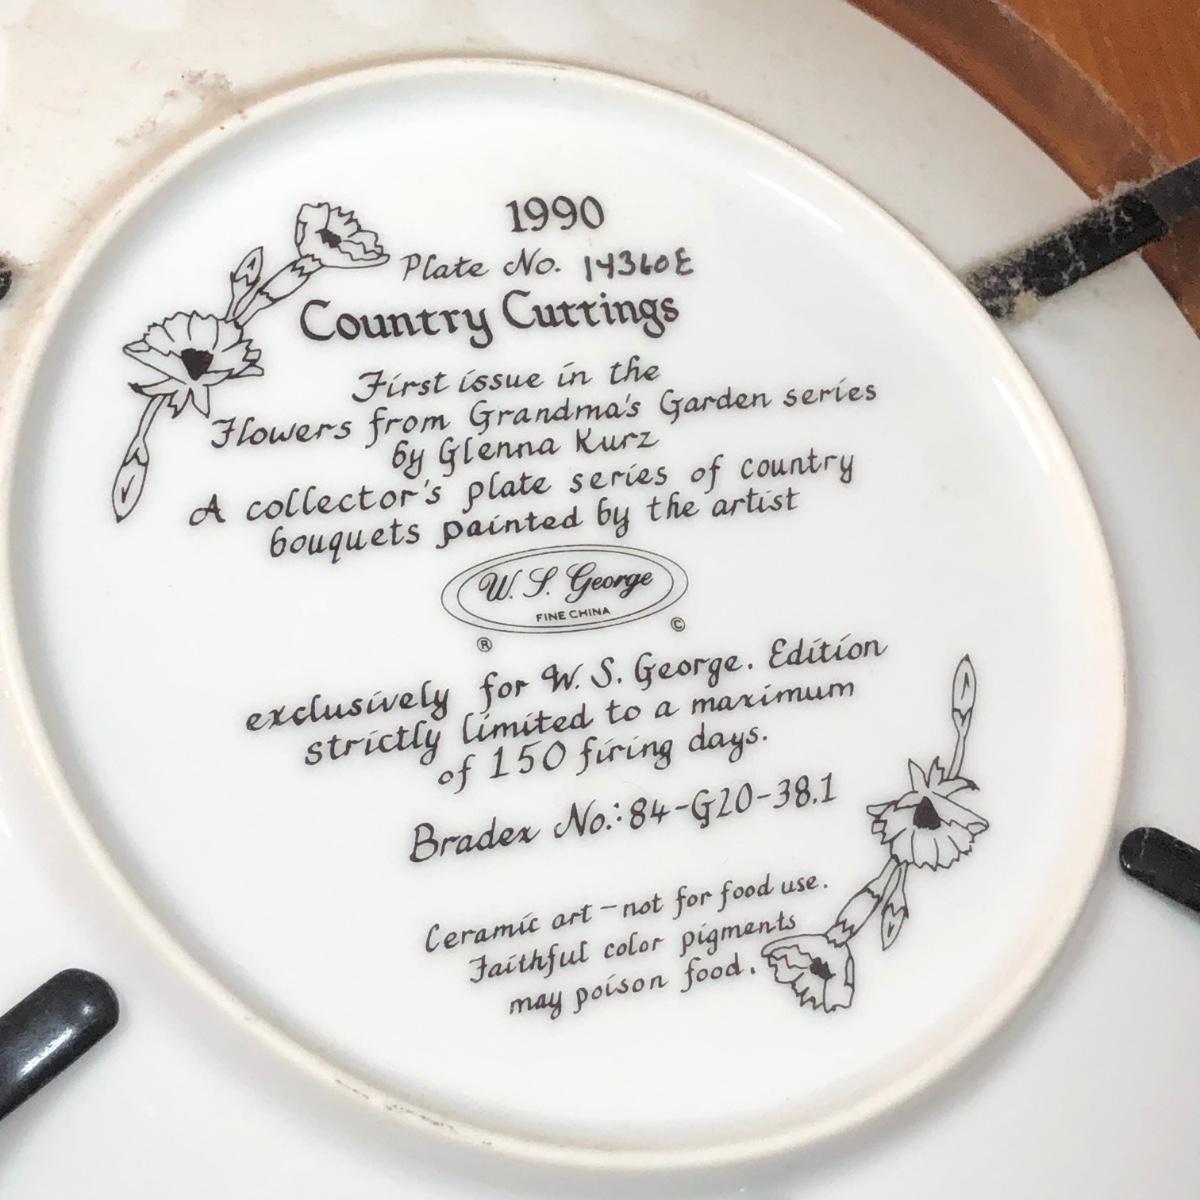 1990
Plate No. 14360E
Country Cuttings
First issue in the
Flowers from Grandma's Garden series
by Glenna Kurz
A collector's plate series of country
bouquets painted by the artist
W. S. George
FINE CHINA
® ©
exclusively for W. S. George. Edition
strictly limited to a maximum
of 150 firing days.
Bradex No.: 84-G20-38.1
Ceramic art – not for food use.
Faithful color pigments
may poison food.